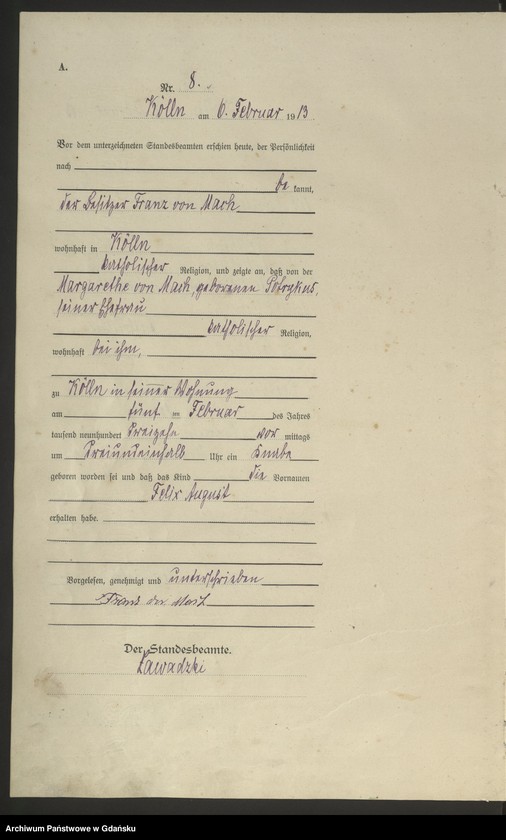 A.
Nr. 8.
Kölln am 6. Februar 1913
Vor dem unterzeichneten Standesbeamten erschien heute, der Persönlichkeit
nach
be kannt,
der Besitzer Franz von Mach
wohnhaft in Kölln
katholischer Religion, und zeigte an, daß von der
Margarethe von Mach, geborenen Potrykus,
seiner Ehefrau
katholischer Religion,
wohnhaft bei ihm,
zu Kölln in seiner Wohnung
am fünf ten Februar des Jahres
tausend neunhundert dreizehn vor mittags
um dreiundeinhalb Uhr ein Knabe
geboren worden sei und daß das Kind die Vornamen
Felix August
erhalten habe.
Vorgelesen, genehmigt und unterschrieben
Franz von Mach
Der Standesbeamte.
Zawadzki
Archiwum Państwowe w Gdańsku